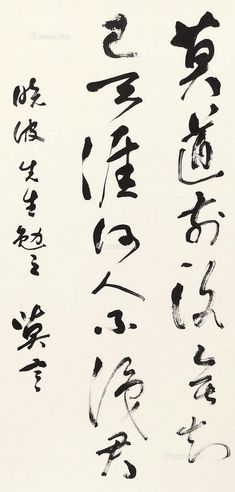 莫道前路无知
己天涯何人不识君
晓波先生勉之 莫言